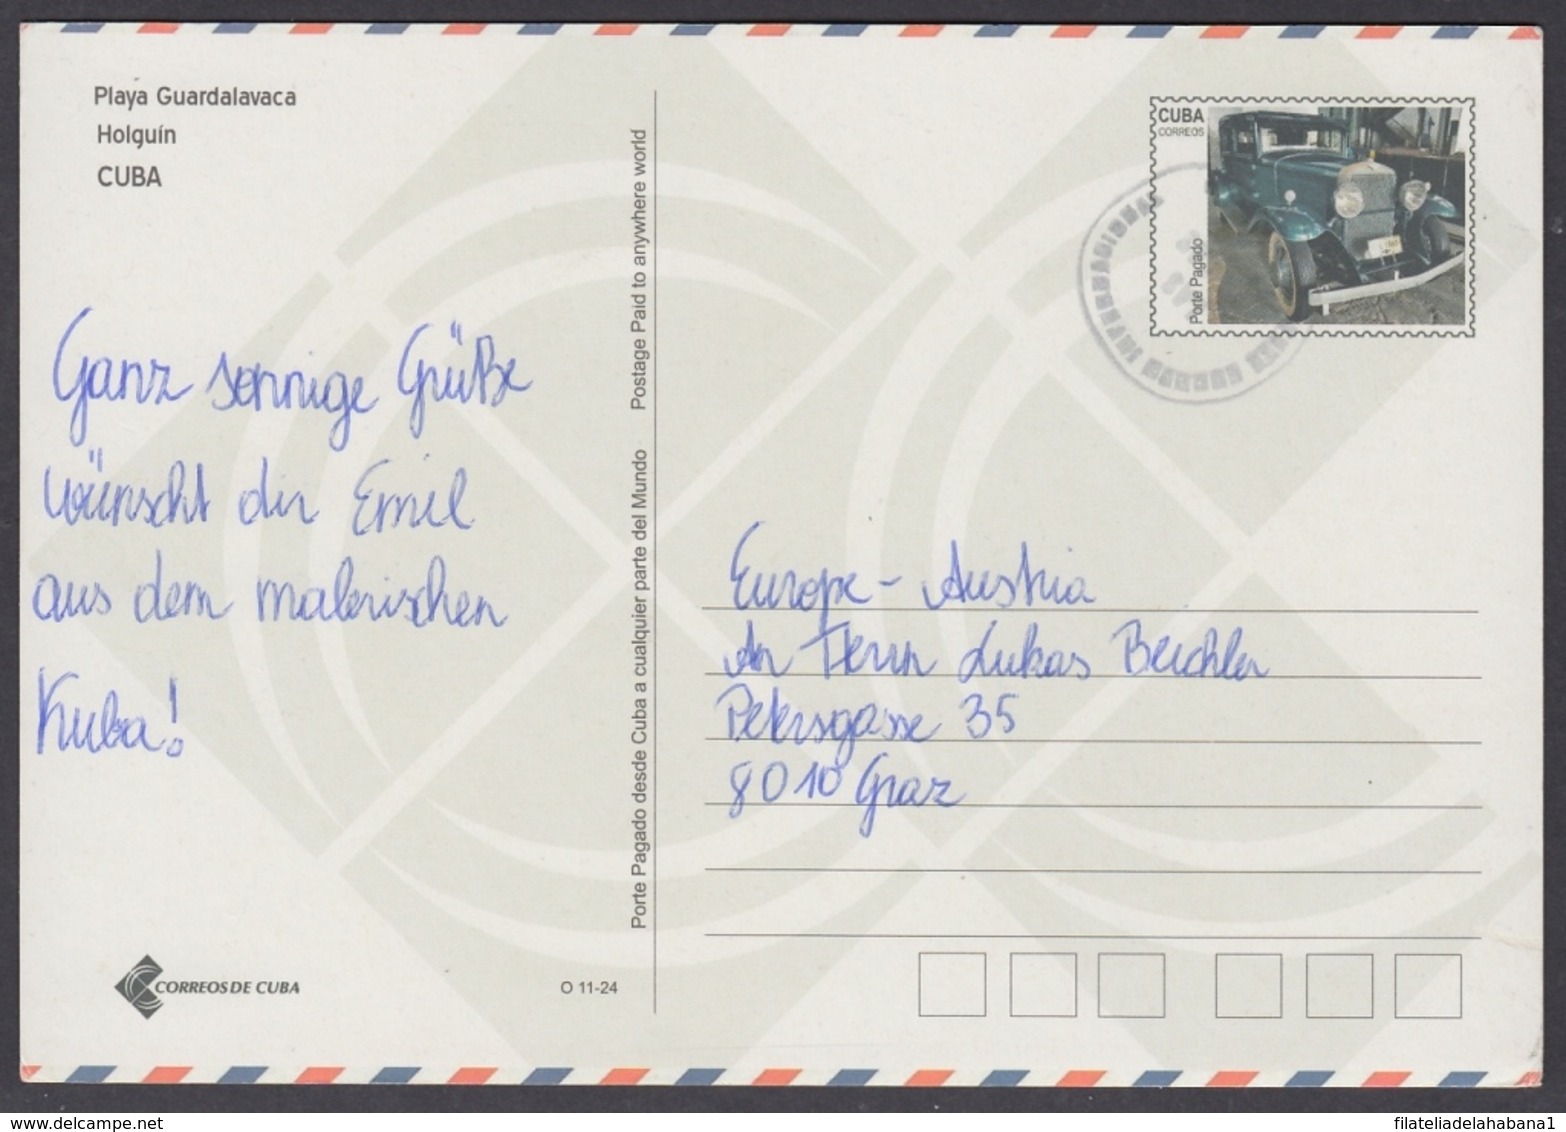 Playa Guardalavaca
Holguín
CUBA
Ganz sonnige Grüße
wünscht dir Emil
aus dem malerischen
Kuba!
CORREOS DE CUBA
O 11-24
Porte Pagado desde Cuba a cualquier parte del Mundo Postage Paid to anywhere world
CUBA
CORREOS
Porte Pagado
Europe - Austria
An Herrn Lukas Beichler
Petersgasse 35
8010 Graz
filateliadelahabana1